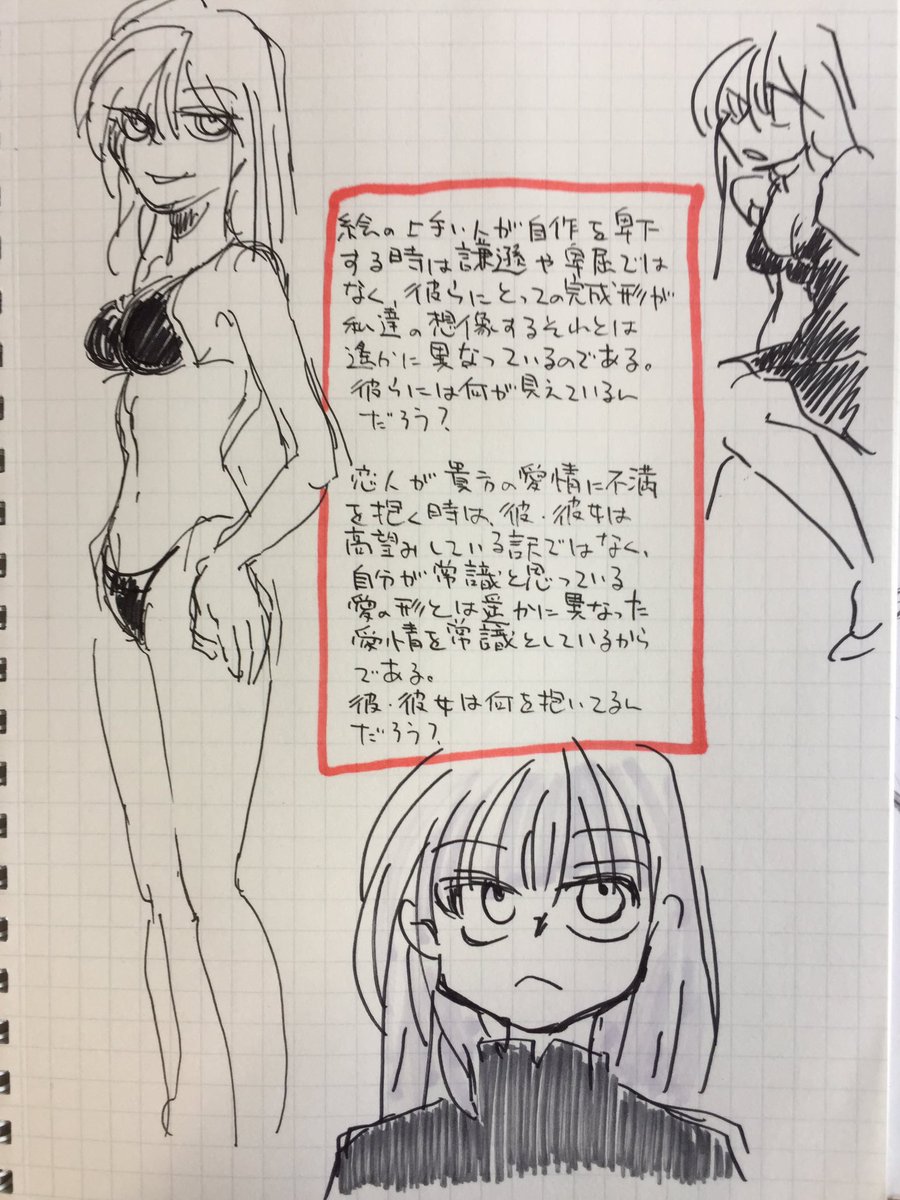 絵の上手い人が自作を卑下
する時は謙遜や卑屈では
なく、彼らにとっての完成形が
私達の想像するそれとは
遥かに異なっているのである。
彼らには何が見えているん
だろう?
恋人が貴方の愛情に不満
を抱く時は、彼・彼女は
高望みしている訳ではなく、
自分が常識と思っている
愛の形とは遥かに異なった
愛情を常識としているから
である。
彼・彼女は何を抱いてるん
だろう?